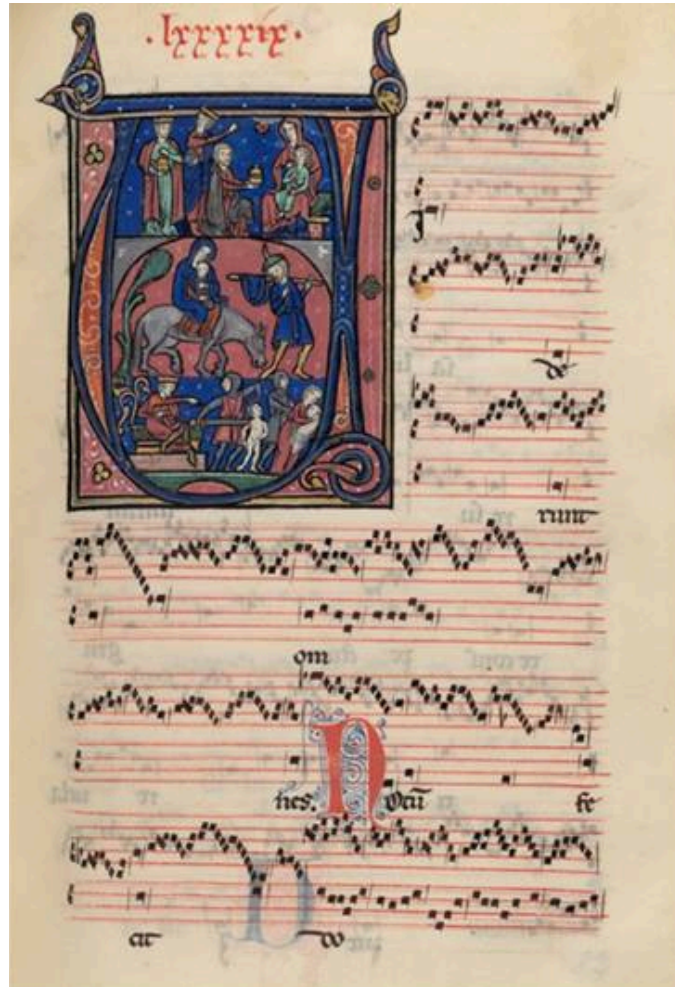 ·lxxxxix·
V i
de
runt
om
nes. Notū fe
cit do